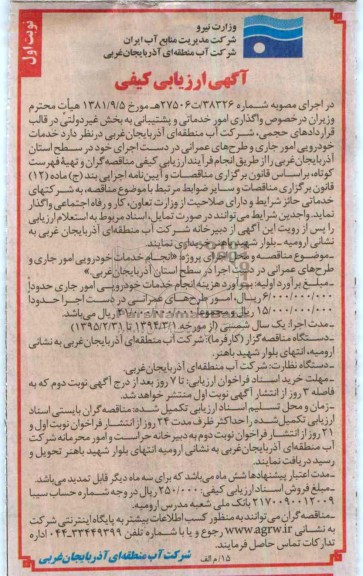 نوبت اول
وزارت نیرو
شرکت مدیریت منابع آب ایران
شرکت آب منطقه‌ای آذربایجان‌غربی
آگهی ارزیابی کیفی
در اجرای مصوبه شماره ۳۸۳۲۶/ت۲۷۵۰۶هـ مورخ ۱۳۸۱/۹/۵ هیأت محترم
وزیران درخصوص واگذاری امور خدماتی و پشتیبانی به بخش غیردولتی در قالب
قراردادهای حجمی، شرکت آب منطقه‌ای آذربایجان‌غربی در نظر دارد خدمات
خودرویی امور جاری و طرح‌های عمرانی در دست اجرای خود در سطح استان
آذربایجان‌غربی را از طریق انجام فرآیند ارزیابی کیفی مناقصه‌گران و تهیه فهرست
کوتاه، براساس قانون برگزاری مناقصات و آیین‌نامه اجرایی بند (ج) ماده (۱۲)
قانون برگزاری مناقصات و سایر ضوابط مرتبط با موضوع مناقصه، به شرکتهای
خدماتی حائز شرایط و دارای صلاحیت از وزارت تعاون، کار و رفاه اجتماعی واگذار
نماید. واجدین شرایط می‌توانند در صورت تمایل، اسناد مربوط به استعلام ارزیابی
را پس از رویت این آگهی از دبیرخانه شرکت آب منطقه‌ای آذربایجان غربی به
نشانی ارومیه ـ بلوار شهید باهنر خریداری نمایند.
ـ موضوع مناقصه و محل اجرای پروژه: «انجام خدمات خودرویی امور جاری و
طرح‌های عمرانی در دست اجرا در سطح استان آذربایجان‌غربی.»
ـ مبلغ برآورد اولیه: برآورد هزینه انجام خدمات خودرویی امور جاری حدوداً
۶/۰۰۰/۰۰۰/۰۰۰ ریال، امور طرح‌های عمرانی در دست اجرا حدوداً
۱۵/۰۰۰/۰۰۰/۰۰۰ ریال و مجموعاً ریال می‌باشد.
ـ مدت اجرا: یک سال شمسی (از مورخه ۱۳۹۴/۳/۱ تا ۱۳۹۵/۲/۳۱)
ـ دستگاه مناقصه‌گزار (کارفرما): شرکت آب منطقه‌ای آذربایجان‌غربی به نشانی
ارومیه، انتهای بلوار شهید باهنر.
ـ دستگاه نظارت: شرکت آب منطقه‌ای آذربایجان‌غربی.
ـ مهلت خرید اسناد فراخوان ارزیابی: تا ۷ روز بعد از درج آگهی نوبت دوم که به
فاصله ۳ روز از انتشار آگهی نوبت اول منتشر خواهد شد.
ـ زمان و محل تسلیم اسناد ارزیابی تکمیل شده: مناقصه‌گران بایستی اسناد
ارزیابی تکمیل‌شده را حداکثر ظرف مدت ۲۴ روز از انتشار فراخوان نوبت اول و
۲۱ روز از انتشار فراخوان نوبت دوم به دبیرخانه حراست و امور محرمانه شرکت
آب منطقه‌ای آذربایجان‌غربی به نشانی ارومیه انتهای بلوار شهید باهنر تحویل و
رسید دریافت نمایند.
ـ مدت اعتبار پیشنهادها شش ماه می‌باشد که برای سه ماه دیگر قابل تمدید می‌باشد.
ـ مبلغ فروش اسناد ارزیابی کیفی: ۲۵۰/۰۰۰ ریال در وجه شماره حساب سیبا
۲۱۷۰۰۹۰۰۱۲۰۰۹ بانک ملی شعبه مدرس ارومیه.
ـ مناقصه‌گران می‌توانند به منظور کسب اطلاعات بیشتر به پایگاه اینترنتی شرکت
به نشانی www.agrw.ir رجوع و یا با شماره تلفن ۳۳۴۴۹۳۹۹-۰۴۴ اداره
تدارکات تماس حاصل فرمایند.
۱۵/م الف
شرکت آب منطقه‌ای آذربایجان‌غربی